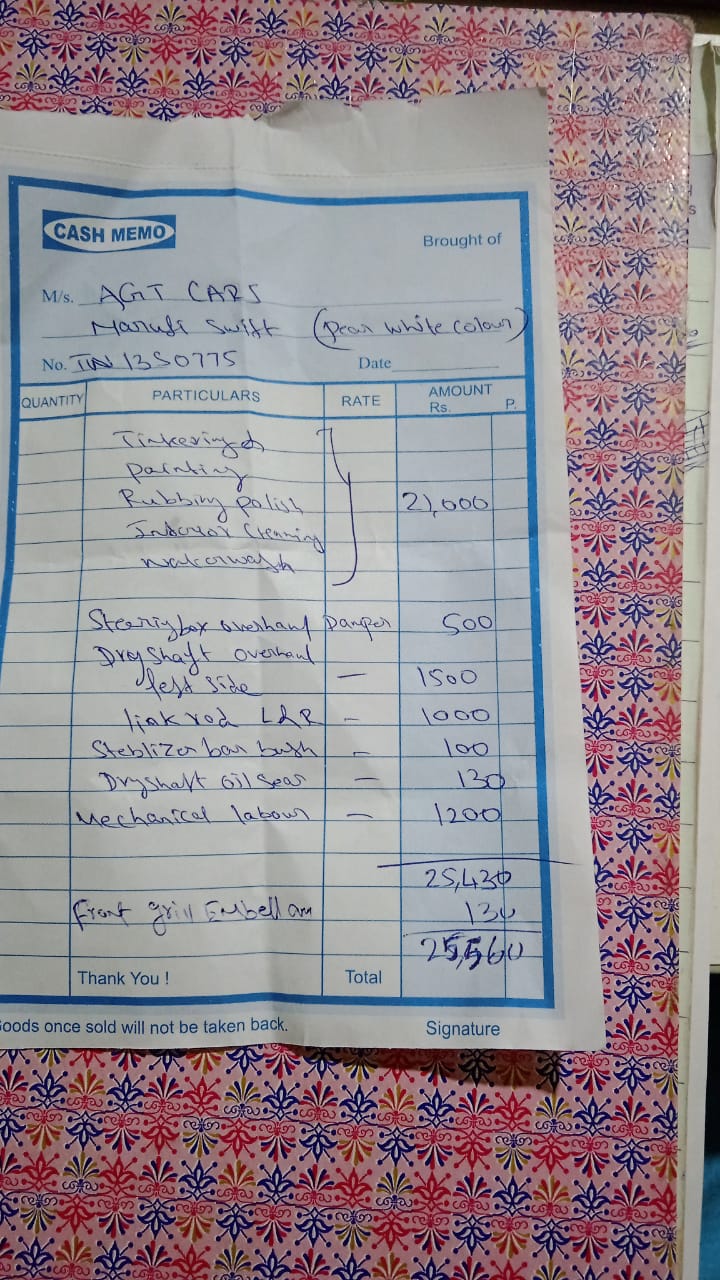 CASH MEMO
Brought of
M/s. AGT CARS
Maruti Swift (pearl white colour)
No. TN 13S0775 Date
QUANTITY PARTICULARS RATE AMOUNT
Rs. P.
Tinkering &
painting
Rubbing polish 21,000
Interior Cleaning
waterwash
Steering box overhaul Damper 500
Dry Shaft overhaul
left Side — 1500
link rod L&R — 1000
Steblizer bar bush — 100
Dryshaft oil Seal — 130
Mechanical labour — 1200
25,430
Front grill Embellam 130
25,560
Thank You ! Total
Goods once sold will not be taken back. Signature